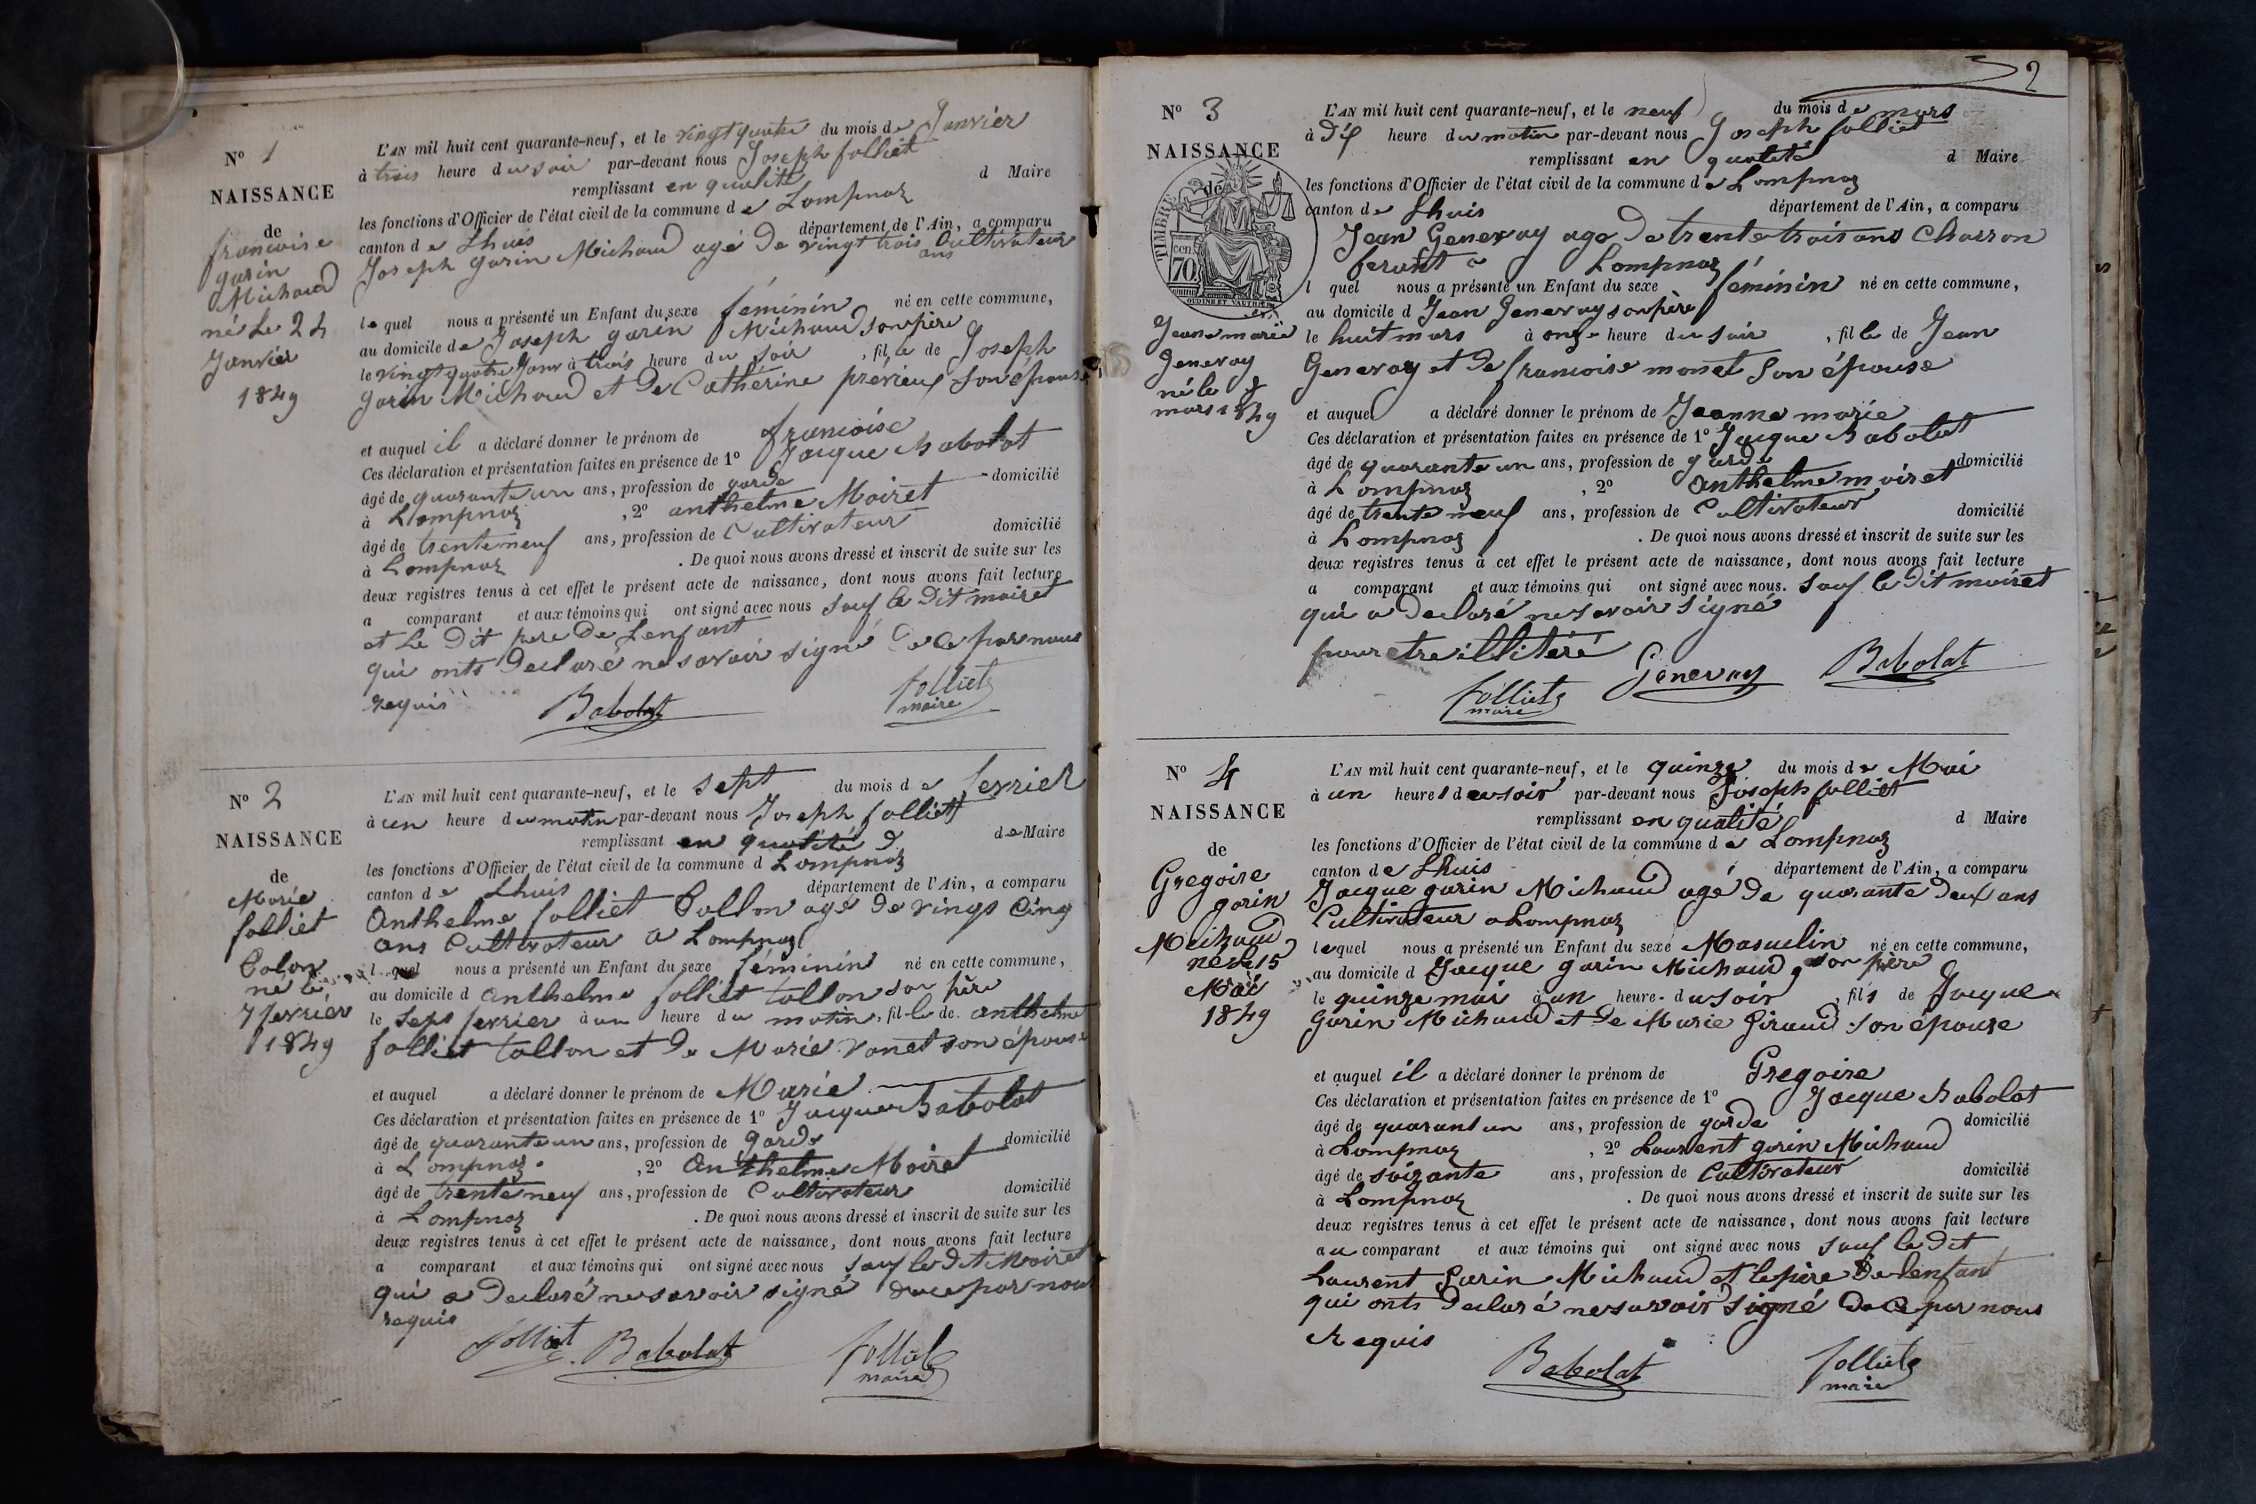 N° 1
NAISSANCE
de
francoise
garin
Michaud
né Le 24
Janvier
1849
L'AN mil huit cent quarante-neuf, et le vingt quatre du mois de Janvier
à trois heure du soir par-devant nous Joseph folliet
remplissant en qualité d Maire
les fonctions d'Officier de l'état civil de la commune de Lompnaz
canton de Lhuis département de l'Ain, a comparu
Joseph garin Michaud agé de vingt trois ans Cultivateur
le quel nous a présenté un Enfant du sexe féminin né en cette commune,
au domicile de Joseph garin Michaud son père
le vingt quatre Janv à trois heure du soir, fille de Joseph
garin Michaud et De Catherine prévieux son épouse
et auquel il a déclaré donner le prénom de francoise
Ces déclaration et présentation faites en présence de 1° Jacque Babolat
âgé de quarante un ans, profession de garde domicilié
à Lompnaz, 2° anthelme Moiret
âgé de trente neuf ans, profession de Cultivateur domicilié
à Lompnaz. De quoi nous avons dressé et inscrit de suite sur les
deux registres tenus à cet effet le présent acte de naissance, dont nous avons fait lecture
a comparant et aux témoins qui ont signé avec nous sauf le Dit moiret
et Le Dit pere De Lenfant
qui onts Declaré ne savoir signé De ce par nous
requis
Babolat folliet
maire
N° 2
NAISSANCE
de
Marie
folliet
Colon
né le
7 fevrier
1849
L'AN mil huit cent quarante-neuf, et le sept du mois de fevrier
à un heure du matin par-devant nous Joseph folliet
remplissant en qualité d de Maire
les fonctions d'Officier de l'état civil de la commune d Lompnaz
canton de Lhuis département de l'Ain, a comparu
Anthelme folliet Collon agé de vingt cinq
ans Cultivateur a Lompnaz
l quel nous a présenté un Enfant du sexe féminin né en cette commune,
au domicile d anthelme folliet Collon son père
le sept fevrier à un heure du matin, fille de anthelme
folliet Collon et de Marie vanet son épouse
et auquel a déclaré donner le prénom de Marie
Ces déclaration et présentation faites en présence de 1° Jacque Babolat
âgé de quarante un ans, profession de garde domicilié
à Lompnaz, 2° Anthelme Moiret
âgé de trente neuf ans, profession de Cultivateur domicilié
à Lompnaz. De quoi nous avons dressé et inscrit de suite sur les
deux registres tenus à cet effet le présent acte de naissance, dont nous avons fait lecture
a comparant et aux témoins qui ont signé avec nous sauf le dit Moiret
qui a Declaré ne savoir signé de ce par nous
requis
folliet Babolat folliet
maire
2
N° 3
NAISSANCE
de
TIMBRE
70
OUDINE ET VAUTHIER
Jeanne marie
Genevay
né le 8
mars 1849
L'AN mil huit cent quarante-neuf, et le neuf du mois de mars
à Dix heure du matin par-devant nous Joseph folliet
remplissant en qualité d Maire
les fonctions d'Officier de l'état civil de la commune de Lompnaz
canton de Lhuis département de l'Ain, a comparu
Jean Genevay age De trente trois ans Charron
Lompnaz
l quel nous a présenté un Enfant du sexe féminin né en cette commune,
au domicile d Jean Genevay son père
le huit mars à onze heure du soir, fille de Jean
Genevay et de francoise monet son épouse
et auquel a déclaré donner le prénom de Jeanne marie
Ces déclaration et présentation faites en présence de 1° Jacque Babolat
âgé de quarante un ans, profession de garde domicilié
à Lompnaz, 2° anthelme moiret
âgé de trente neuf ans, profession de Cultivateur domicilié
à Lompnaz. De quoi nous avons dressé et inscrit de suite sur les
deux registres tenus à cet effet le présent acte de naissance, dont nous avons fait lecture
a comparant et aux témoins qui ont signé avec nous. sauf le Dit moiret
qui a declaré ne savoir signé
pour etre illitéré
folliet Genevay Babolat
maire
N° 4
NAISSANCE
de
Gregoire
garin
Michaud
né le 15
Mai
1849
L'AN mil huit cent quarante-neuf, et le quinze du mois de Mai
à un heure du soir par-devant nous Joseph folliet
remplissant en qualité d Maire
les fonctions d'Officier de l'état civil de la commune de Lompnaz
canton de Lhuis département de l'Ain, a comparu
Jacque garin Michaud agé de quarante deux ans
Cultivateur a Lompnaz
lequel nous a présenté un Enfant du sexe Masculin né en cette commune,
au domicile d Jacque garin Michaud son père
le quinze mai à un heure du soir, fils de Jacque
Garin Michaud et de Marie Giraud son épouse
et auquel il a déclaré donner le prénom de Gregoire
Ces déclaration et présentation faites en présence de 1° Jacque Babolat
âgé de quarant un ans, profession de garde domicilié
à Lompnaz, 2° Laurent garin Michaud
âgé de soizante ans, profession de Cultivateur domicilié
à Lompnaz. De quoi nous avons dressé et inscrit de suite sur les
deux registres tenus à cet effet le présent acte de naissance, dont nous avons fait lecture
au comparant et aux témoins qui ont signé avec nous sauf le Dit
Laurent Garin Michaud et le père De lenfant
qui onts Declaré ne savoir signé De ce par nous
Requis
Babolat folliet
maire